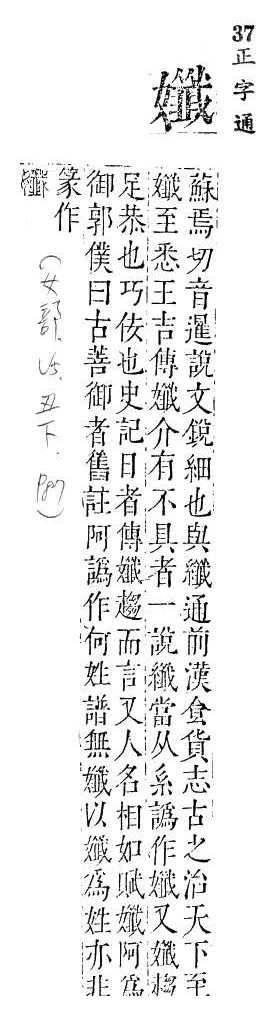 37
正字通
孅
蘇焉切音暹說文銳細也與纖通前漢食貨志古之治天下至
孅至悉王吉傳孅介有不具者一說纖當从糸譌作孅又孅趨
足恭也巧佞也史記日者傳孅趨而言又人名相如賦孅阿爲
御郭僕曰古善御者舊註阿譌作何姓譜無孅以孅爲姓亦非
篆作
孅
(女部.丑下.